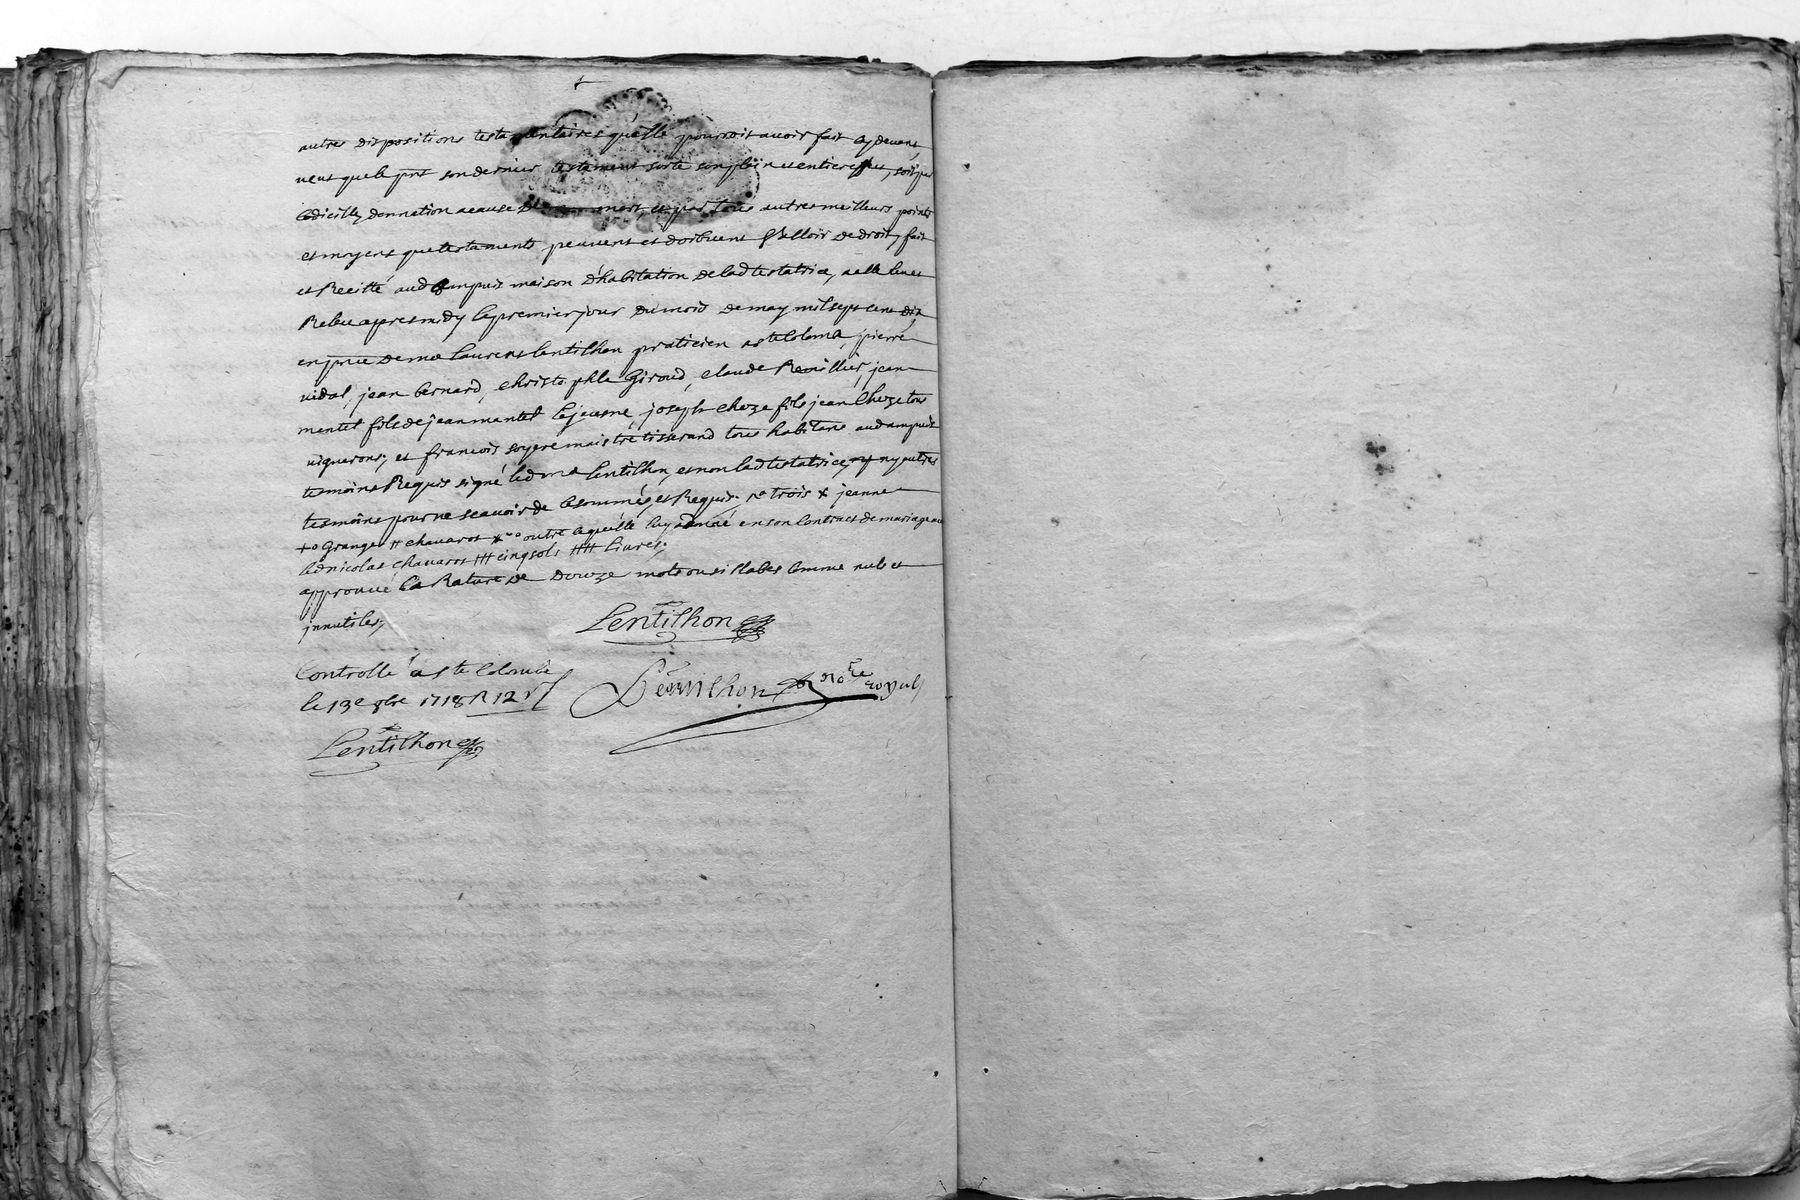 autres dispositions testamentaires qu'elle pourroit avoir fait cy devant,
veut que le pnt son dernier testament sorte son plein et entier effect, soit par
Codicille, donnation a cause de mort, et par tous autres meilleurs points
et moyens que testaments peuvent et doibvent valloir de droit, fait
et Recitté aud ampuis maison d'habitation de lad testatrice, a elle leu et
Releu apres midy le premier jour du mois de may mil sept cens dix
en pnce de me laurens lentilhon praticien a ste Colombe, pierre
vidal, jean bernard, christophle Giroud, claude Remillier, jean
mentel fils de jean mantel le jeusne, joseph cheze fils jean Cheze tous
vignerons, et francois soyere maistre tisserand tous habitans aud ampuis
tesmoins Requis signé led me lentilhon, et non lad testatrice, ny autres
tesmoins pour ne scavoir de ce sommés, et Requis. trois x jeanne
+o Granger # chavarot outre ce qu'elle luy a donné en son Contract de mariage avec
led nicolas chavarot ### cinq sols #### livres;
approuvé la Rature de douze mots ou sillabes Comme nuls et
innutiles,
Lentilhon
Controllé a ste Colombe
le 13e 9bre 1718 R 12 s
Lentilhon nore royal
Lentilhon